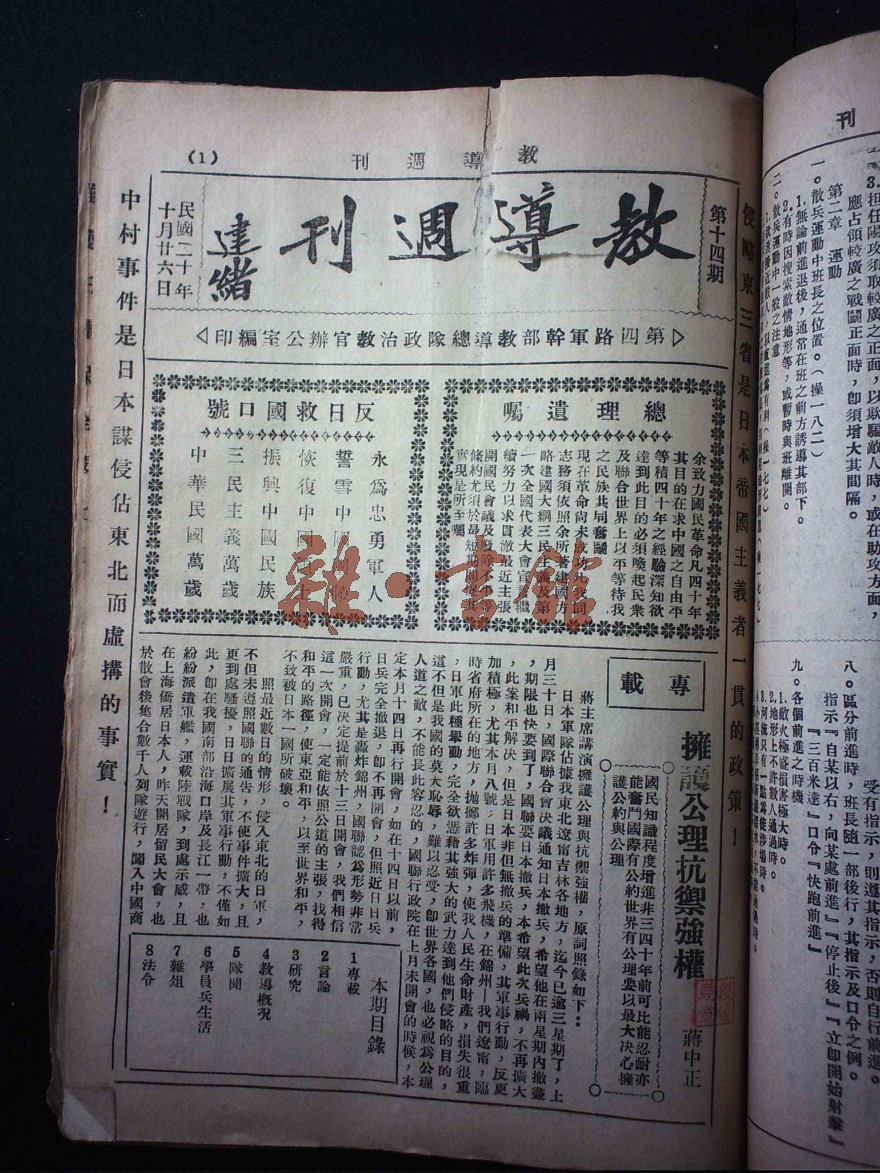 (1)
刊週導教
侵略東三省是日本帝國主義者一貫的政策！
第十四期
刊週導教
達緒
民國二十年
十月廿六日
印編室公辦官教治政隊總導教部幹軍路四第
中村事件是日本謀侵佔東北而虛構的事實！
囑遺理總
余致力國民革命凡四十年
其目的在求中國之自由平
等積四十年之經驗深知欲
達到此目的必須喚起民衆
及聯合世界上以平等待我
之民族共同奮鬬
現在革命尚未成功凡我同
志務須依照余所著建國方
略建國大綱三民主義及第
一次全國代表大會宣言繼
續努力以求貫澈最近主張
開國民會議及廢除不平等
條約尤須於最短期間促其
實現是所至囑
號口國救日反
永爲忠勇軍人
誓雪中國國恥
恢復中國領土
振興中國民族
三民主義萬歲
中華民國萬歲
載專
擁護公理抗禦強權
蔣中正
國民知識程度增進非三四十年前可比能忍耐亦
能奮鬥國際有公約世界有公理要以最大决心擁
護公約與公理
蔣主席講演擁護公理與抗禦強權，原詞照錄如下：
日本軍隊佔據我東北遼甯吉林各地方，迄今已逾三星期了，上
月三十日，國際聯合會決議通知日本撤兵，希望他在兩星期內撤盡
，期限也快要到了，國聯要日本撤兵，本希望此次兵禍，不再擴大
，此案和平解决，但是日本非但無撤兵的準備，其軍事行動，反更
加積極，尤其本月八號，日軍用許多飛機，在錦州—我們遼甯，臨
時省府所在的地方，拋擲許多炸彈，使我人民生命財產，損失很重
，日軍此種舉動，完全欲憑藉其強大的武力達到他們侵略的目的，
這不但是我國的莫大恥辱，難以忍受，卽世界各國，也必視爲公理
人道之敵，不能長此容忍的，國聯行政院在上月未開會的時候，本
定本月十四日再行開會，如在十四日以前，
日兵完全撤退，卽不再開會，但照近日日兵
行動，尤其是轟炸錦州，國聯認爲形勢非常
嚴重，已决定提前於十三日開會，我們相信
這一次開會，一定能依照公道的主張，找得
和平的路徑，使東亞和平，以至世界和平，
不致被日本一國所破壞。
照最近數日的情形，侵入東北的日軍，
不但未遵照國聯的通告，不使事件擴大，且
更到處騷擾，日日擴展其軍事行動，不僅如
此，卽在我國南部沿海口岸及長江一帶，也
紛紛派遣軍艦，運載陸戰隊，到處示威，且
在上海僑居日本人，昨天開居留民大會，也
於散會後集合數千人列隊遊行，闖入中國商
本期目錄
1專載
2言論
3研究
4教導概况
5隊聞
6學員兵生活
7雜組
8法令
刊
3.担任陽攻須取較廣之正面，以欺騙敵人時，或在助攻方面，
應占領較廣之戰鬭正面時，卽須增大其間隔。
第二章 運動
一。散兵運動中班長之位置。(操一八二)
1.無論前進退後，通常在班之前方誘導其部下。
2.有時因搜索敵情地形等，或暫時與班離開。
二。散兵運動中一般之注意
受有指示，則遵其指示，否則自行前進。
八。區分前進時，班長隨一部後行，其指示及口令之例。
指示『自某以右，向某處前進』『停止後』『立卽開始射擊』
『三百米達』口令『快跑前進』
九。各個前進之時機
1.敵火極盛損害極大時。
2.地形上不許數人通過時。
雜·書館